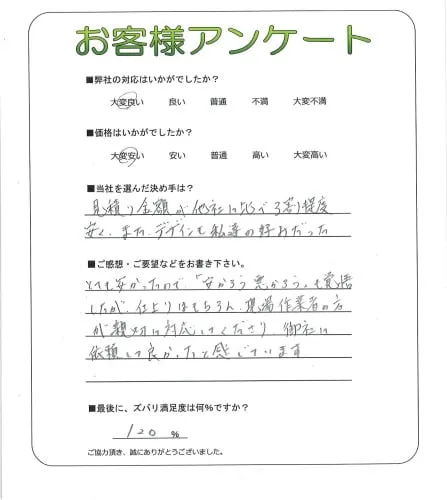 お客様アンケート
■弊社の対応はいかがでしたか？
大変良い 良い 普通 不満 大変不満
■価格はいかがでしたか？
大変安い 安い 普通 高い 大変高い
■当社を選んだ決め手は？
見積り金額が他社に比べ3割程度
安く、また、デザインも私達の好みだった
■ご感想・ご要望などをお書き下さい。
とても安かったので「安かろう悪かろう」も覚悟
したが、仕上りはもちろん、現場作業者の方
が親切に対応してくださり、御社に
依頼して良かったと感じています
■最後に、ズバリ満足度は何％ですか？
120 %
ご協力頂き、誠にありがとうございました。